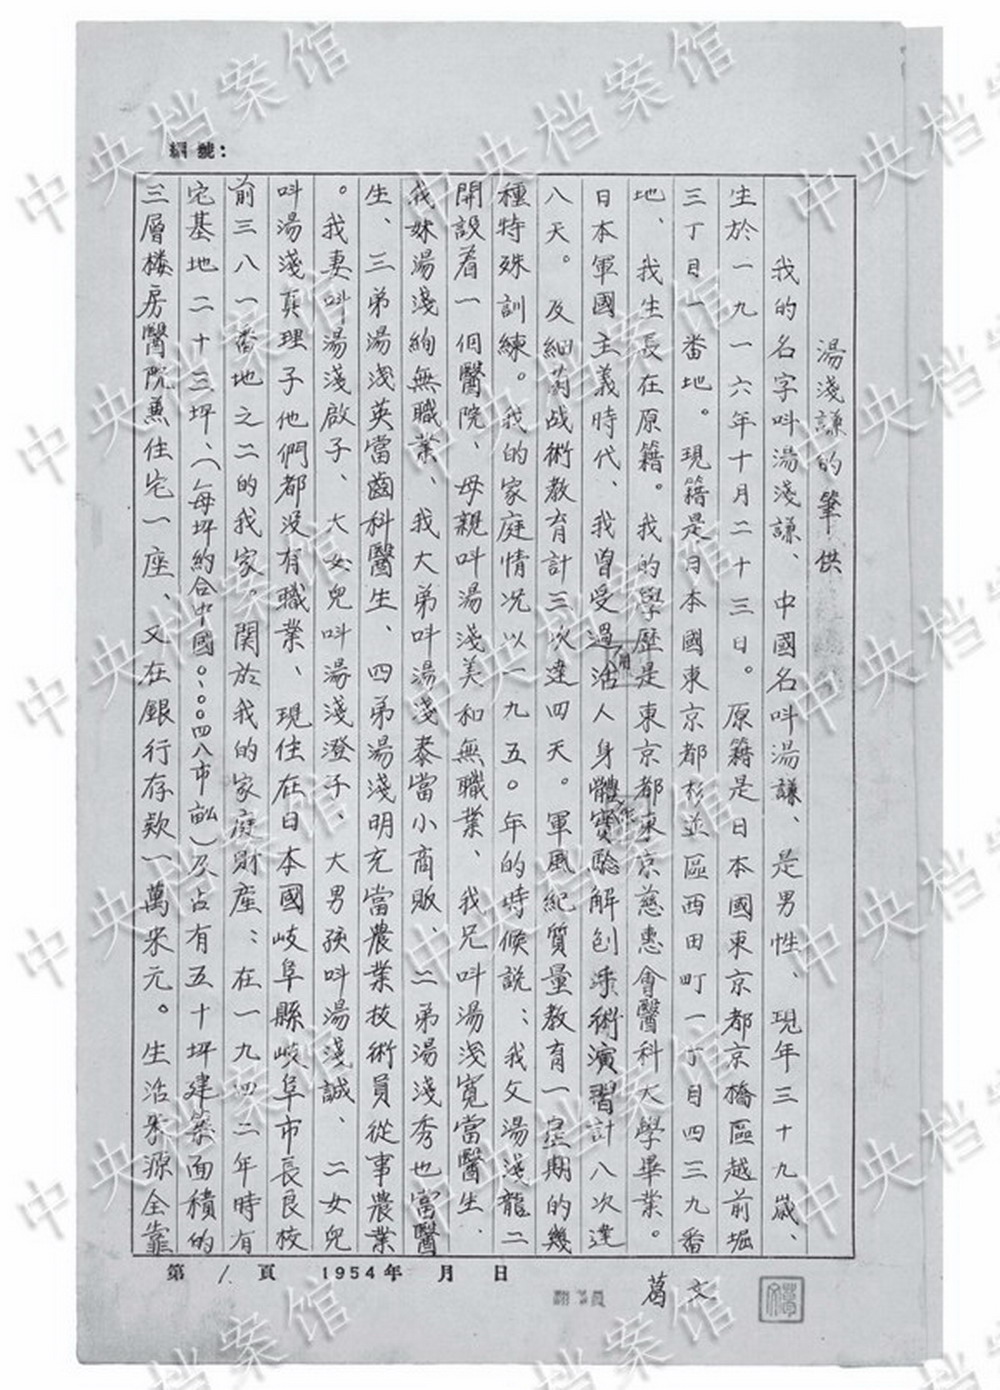 編號：
湯淺謙的筆供
我的名字叫湯淺謙、中國名叫湯謙、是男性、現年三十九歲、
生於一九一六年十月二十三日。原籍是日本國東京都京橋區越前堀
三丁目一番地。現籍是日本國東京都杉並區西田町一丁目四三九番
地、我生長在原籍。我的學歷是東京都東京慈惠會醫科大學畢業。
日本軍國主義時代、我曾受過用活人身體實驗解剖手術演習計八次達
八天。及細菌战術教育計三次達四天。軍風紀質量教育一星期的幾
種特殊訓練。我的家庭情况以一九五〇年的時候説：我父湯淺龍二
開設着一個醫院、母親叫湯淺美和無職業、我兄叫湯淺寬當醫生.
我妹湯淺絢無職業、我大弟叫湯淺泰當小商販、二弟湯淺秀也當醫
生、三弟湯淺英當齒科醫生、四弟湯淺明充當農業技術員從事農業
。我妻叫湯淺啟子、大女兒叫湯淺澄子、大男孩叫湯淺誠、二女兒
叫湯淺真理子他們都没有職業、現住在日本國岐阜縣岐阜市長良校
前三八一番地之二的我家。関於我的家庭財産：在一九四二年時有
宅基地二十三坪、（每坪約合中國〇、〇〇四八市畝）及占有五十坪建築面積的
三層楼房醫院兼住宅一座、又在銀行存款一萬米元。生活來源全靠
第1頁 1954年 月 日
翻譯員 葛文
中央档案馆